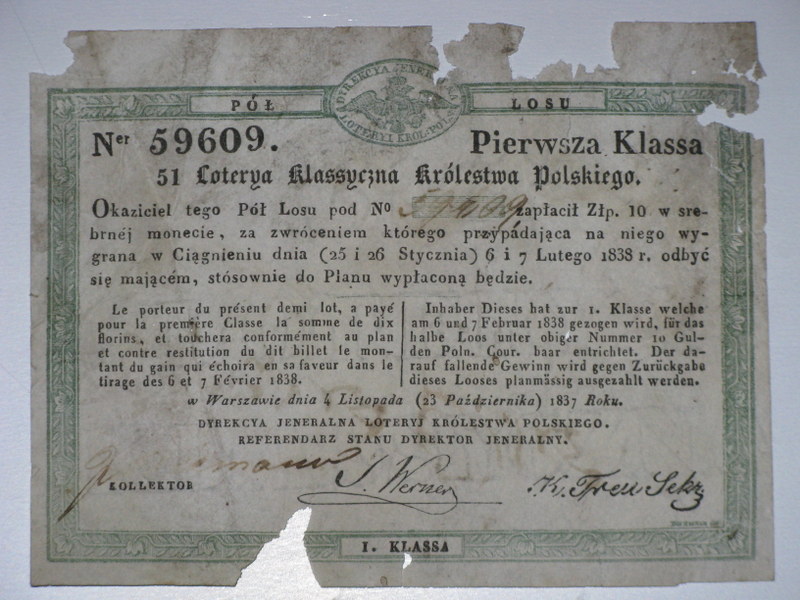 DYREKCYA JENERALNA
LOTERYI KRÓL: POLS:
PÓŁ LOSU
Ner 59609. Pierwsza Klassa
51 Loterya Klassyczna Królestwa Polskiego.
Okaziciel tego Pół Losu pod No 59609 zapłacił Złp. 10 w sre-
brnéj monecie, za zwróceniem którego przypadająca na niego wy-
grana w Ciągnieniu dnia (25 i 26 Stycznia) 6 i 7 Lutego 1838 r. odbyć
się mającém, stósownie do Planu wypłaconą będzie.
Le porteur du présent demi lot, a payé
pour la première Classe la somme de dix
florins, et touchera conformément au plan
et contre restitution du dit billet le mon-
tant du gain qui échoira en sa faveur dans le
tirage des 6 et 7 Février 1838.
Inhaber Dieses hat zur 1. Klasse welche
am 6 und 7 Februar 1838 gezogen wird, für das
halbe Loos unter obiger Nummer 10 Gul-
den Poln. Cour. baar entrichtet. Der da-
rauf fallende Gewinn wird gegen Zurückgabe
dieses Looses planmässig ausgezahlt werden.
w Warszawie dnia 4 Listopada (23 Października) 1837 Roku.
DYREKCYA JENERALNA LOTERYJ KRÓLESTWA POLSKIEGO.
REFERENDARZ STANU DYREKTOR JENERALNY.
KOLLEKTOR J. Werner K. Treu Sekr
I. KLASSA